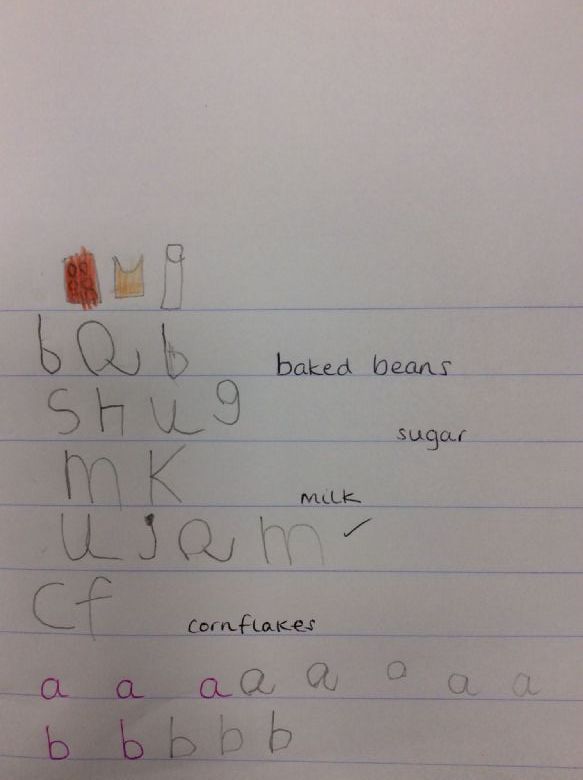 b a b baked beans
s h u g sugar
m k milk
u j a m ✓
c f cornflakes
a a a a a a a a
b b b b b